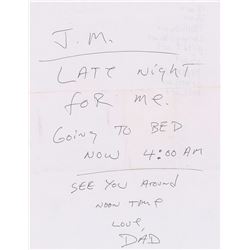 J.M.
LATE NigHT
FOR ME.
GOING TO BED
NOW 4:00 AM
SEE YOU AROUND
NOON TIME
LOVE,
DAD